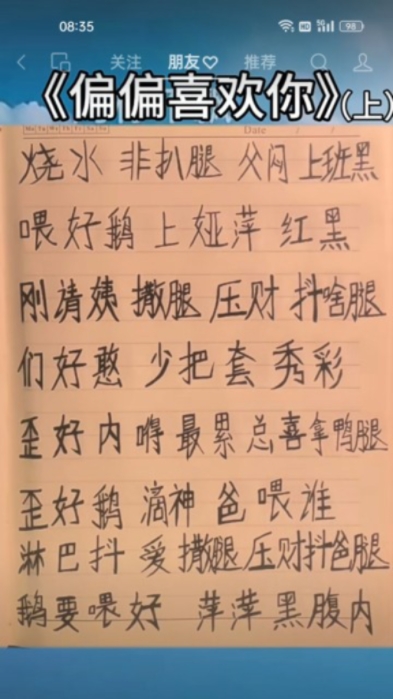 08:35
HD 5G 98
关注 朋友♡ 推荐
《偏偏喜欢你》(上)
Mo Tu We Th Fr Sa Su Date / /
烧水 非扒腿 父闷 上班黑
喂好鹅 上娅萍 红黑
刚清姨 撒腿 压财 抖啥腿
们好憨 少把套秀彩
歪好内 嘚最累总喜拿鸭腿
歪好鹅 滴神爸喂谁
淋巴抖 爱撒腿压财抖爸腿
鹅要喂好 萍萍黑腹内